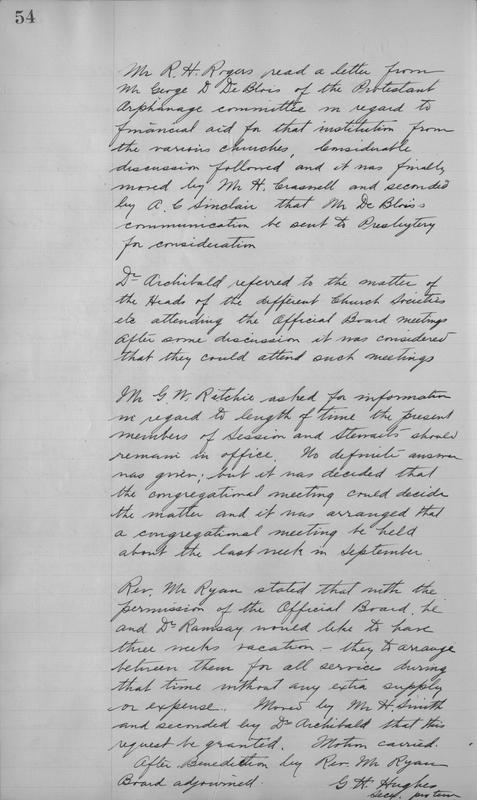 54
Mr R. H. Rogers read a letter from
Mr George D De Blois of the Protestant
Orphanage committee in regard to
financial aid for that institution from
the various churches, Considerable
discussion followed and it was finally
moved by Mr H. Craswell and seconded
by A. C Sinclair that Mr De Blois's
communication be sent to Presbytery
for consideration
Dr Archibald referred to the matter of
the Heads of the different Church Societies
etc attending the Official Board meetings
After some discussion it was considered
that they could attend such meetings
Mr G. W. Ritchie asked for information
in regard to length of time the present
members of Session and Stewards should
remain in office. No definite answer
was given; but it was decided that
the congregational meeting could decide
the matter and it was arranged that
a congregational meeting be held
about the last week in September
Rev. Mr Ryan stated that with the
permission of the Official Board, he
and Dr Ramsay would like to have
three weeks vacation - they to arrange
between them for all services during
that time without any extra supply
or expense. Moved by Mr H. Smith
and seconded by Dr Archibald that this
request be granted. Motion carried.
After Benediction by Rev. Mr Ryan
Board adjourned. G. H. Hughes
Secy. protem